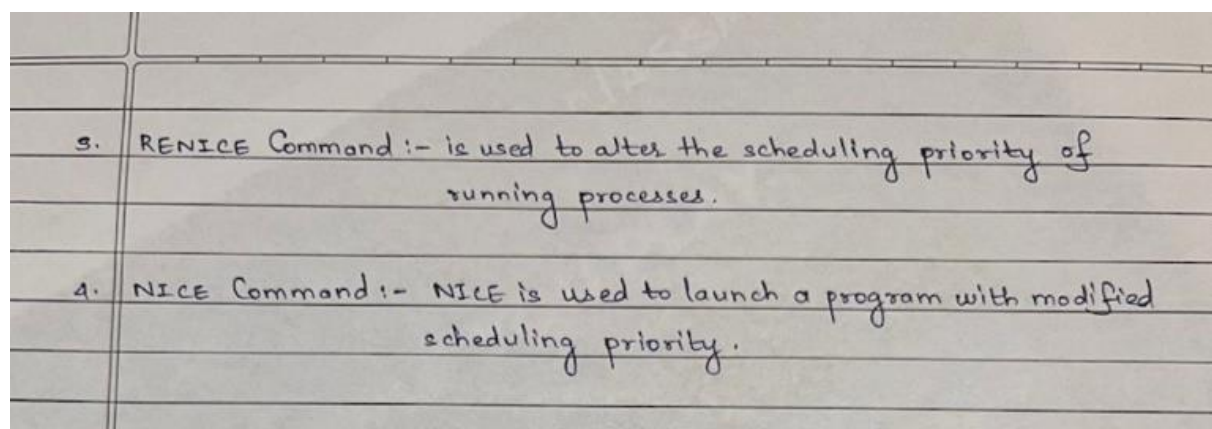 3. RENICE Command :- is used to alter the scheduling priority of
running processes.
4. NICE Command :- NICE is used to launch a program with modified
scheduling priority.